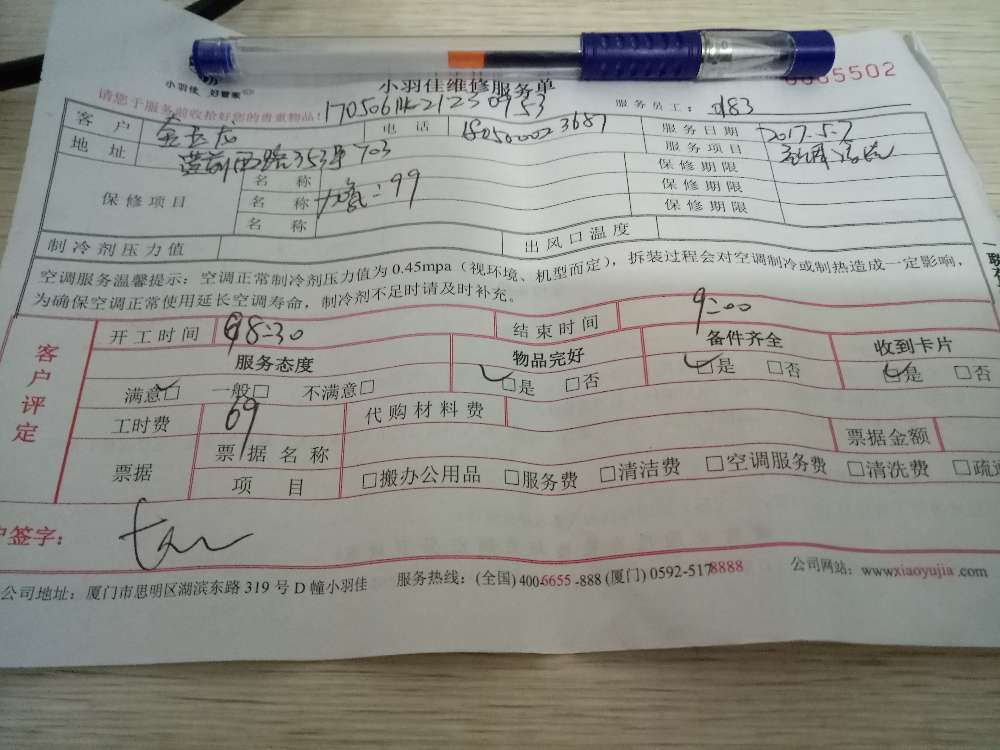 小羽佳 好管家
小羽佳维修服务单
5502
请您于服务前收拾好您的贵重物品!
服务员工:
客户
电话
服务日期 2017.5.7
地址 353号703
服务项目 空调清洗
保修项目 名称
99
保修期限
名称
保修期限
名称
保修期限
制冷剂压力值
出风口温度
空调服务温馨提示:空调正常制冷剂压力值为0.45mpa(视环境、机型而定),拆装过程会对空调制冷或制热造成一定影响,
为确保空调正常使用延长空调寿命,制冷剂不足时请及时补充。
客户评定
开工时间 8:30
结束时间 9:00
服务态度 物品完好 备件齐全 收到卡片
满意□ 一般□ 不满意□ □是 □否 □是 □否 □是 □否
工时费 69 代购材料费
票据 票据名称 票据金额
项目 □搬办公用品 □服务费 □清洁费 □空调服务费 □清洗费 □疏通
户签字:
公司地址:厦门市思明区湖滨东路319号D幢小羽佳 服务热线:(全国)400-6655-888 (厦门)0592-5178888 公司网站:www.xiaoyujia.com